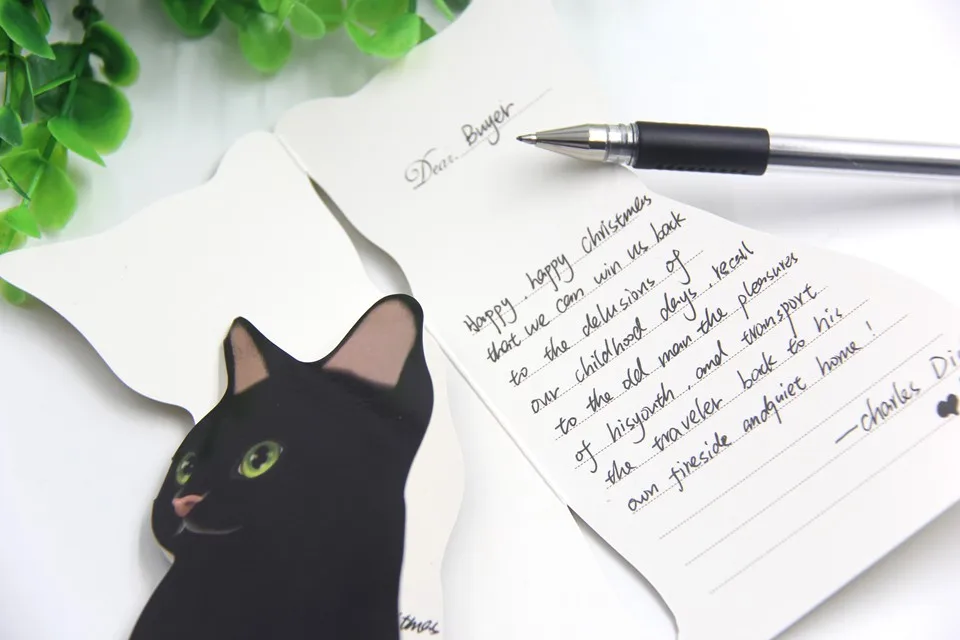 Dear Buyer
Happy, happy Christmas
that we can win us back
to the delusions of
our childhood days, recall
to the old man the pleasures
of hisyouth, and transport
the traveler back to his
own fireside andquiet home!
—charles